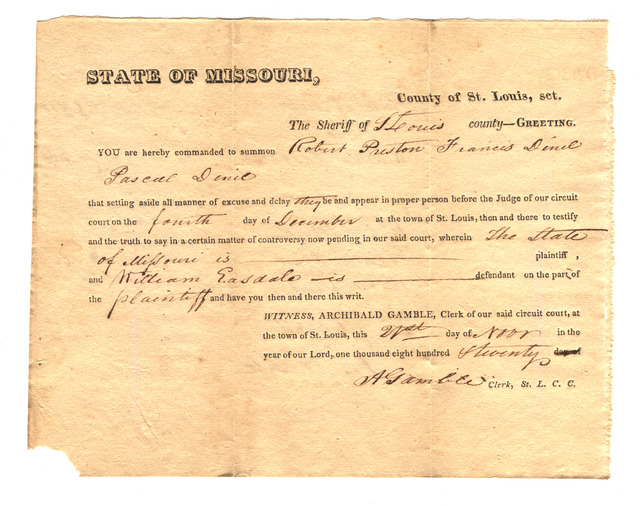 STATE OF MISSOURI,
County of St. Louis, sct.
The Sheriff of St Louis county—GREETING.
YOU are hereby commanded to summon Robert Preston Francis Dinil
Pascal Dinil
that setting aside all manner of excuse and delay they be and appear in proper person before the Judge of our circuit
court on the fourth day of December at the town of St. Louis, then and there to testify
and the truth to say in a certain matter of controversy now pending in our said court, wherein The State
of Missouri is plaintiff,
and William Easdale is defendant on the part of
the plaintiff and have you then and there this writ.
WITNESS, ARCHIBALD GAMBLE, Clerk of our said circuit court, at
the town of St. Louis, this 21st day of Novr in the
year of our Lord, one thousand eight hundred & twenty day of
A Gamble Clerk, St. L. C. C.